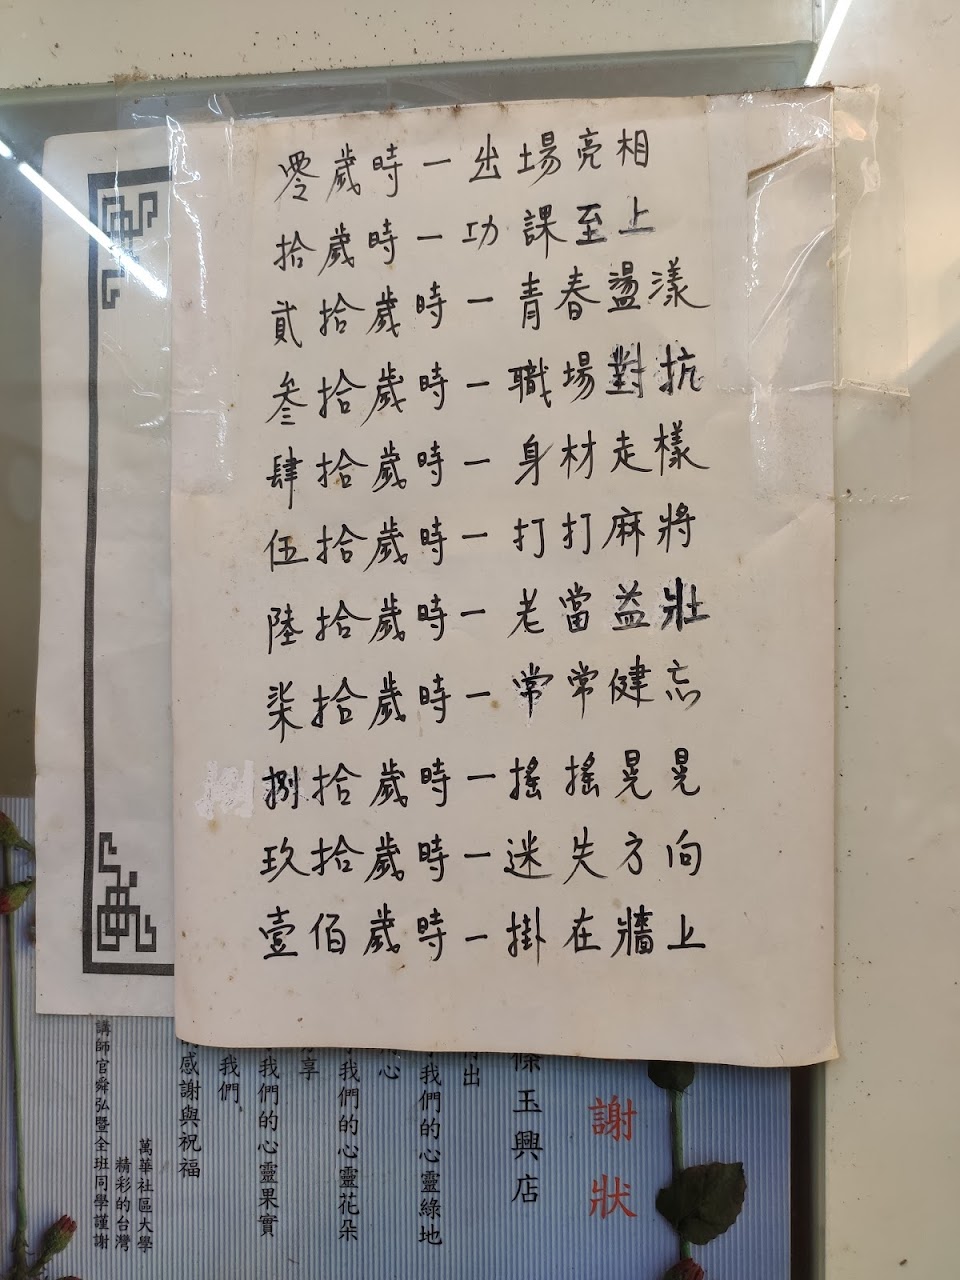 零歲時－出場亮相
拾歲時－功課至上
貳拾歲時－青春盪漾
叁拾歲時－職場對抗
肆拾歲時－身材走樣
伍拾歲時－打打麻將
陸拾歲時－老當益壯
柒拾歲時－常常健忘
捌拾歲時－搖搖晃晃
玖拾歲時－迷失方向
壹佰歲時－掛在牆上
謝狀
玉興店
出
我們的心靈綠地
心
我們的心靈花朵
享
我們的心靈果實
我們
感謝與祝福
萬華社區大學
精彩的台灣
講師官舜弘暨全班同學謹謝